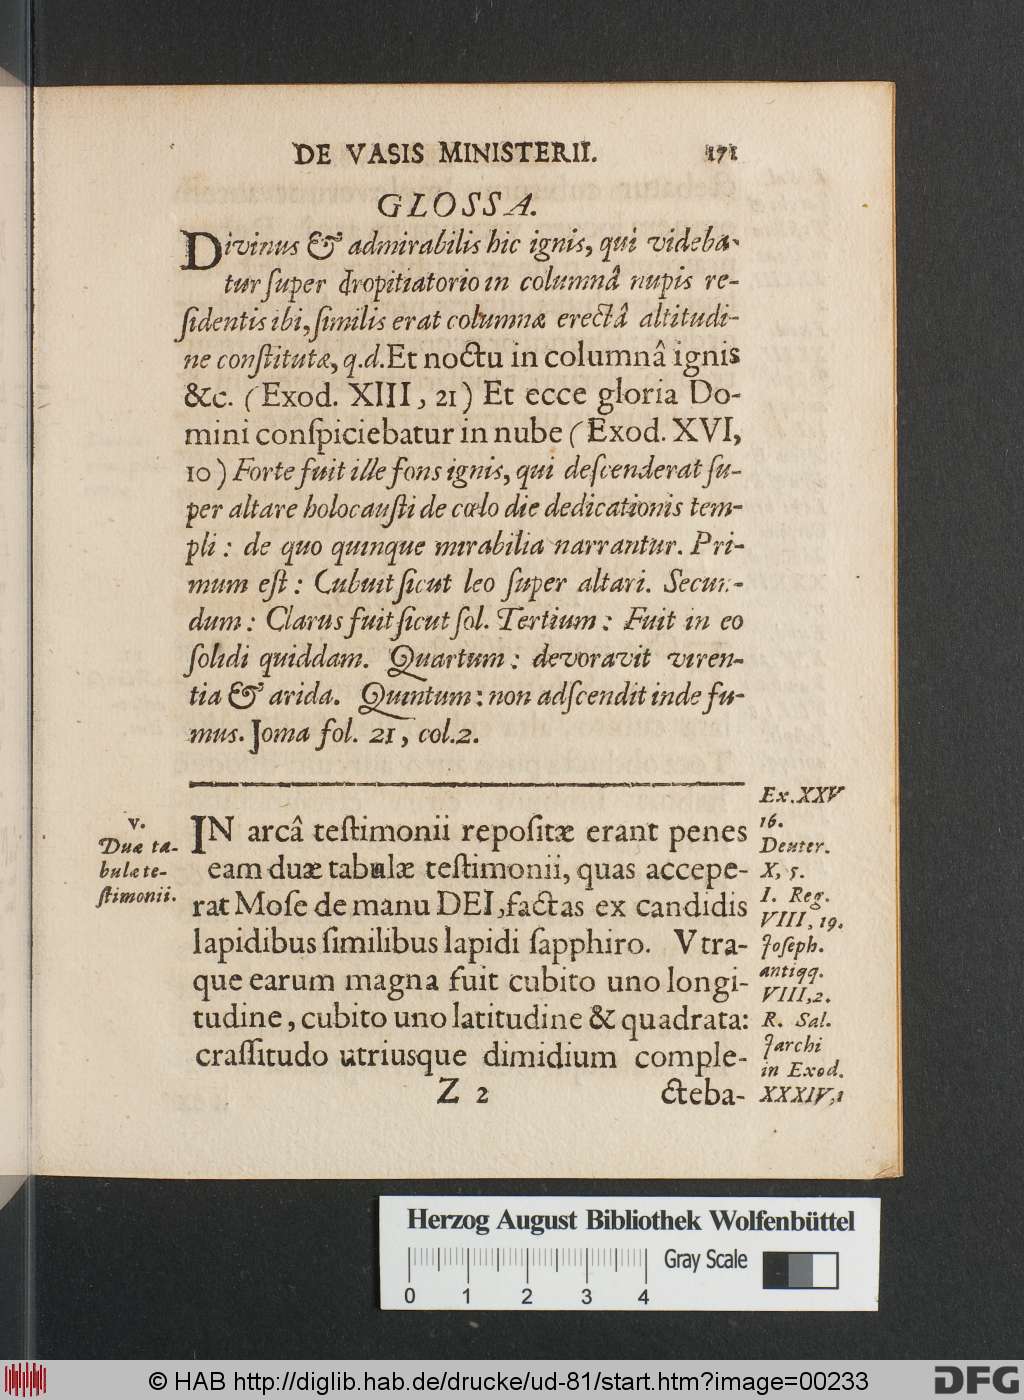 DE VASIS MINISTERII. 171
GLOSSA.
Divinus & admirabilis hic ignis, qui videba-
tur ſuper dropitiatorio in columnâ nupis re-
ſidentis ibi, ſimilis erat columnæ erectâ altitudi-
ne conſtitutæ, q.d. Et noctu in columnâ ignis
&c. (Exod. XIII, 21) Et ecce gloria Do-
mini conſpiciebatur in nube (Exod. XVI,
10) Forte fuit ille fons ignis, qui deſcenderat ſu-
per altare holocauſti de cœlo die dedicationis tem-
pli: de quo quinque mirabilia narrantur. Pri-
mum eſt: Cubuit ſicut leo ſuper altari. Secun-
dum: Clarus fuit ſicut ſol. Tertium: Fuit in eo
ſolidi quiddam. Quartum: devoravit viren-
tia & arida. Quintum: non adſcendit inde fu-
mus. Joma fol. 21, col. 2.
v.
Duæ ta-
bulæ te-
ſtimonii.
IN arcâ teſtimonii repoſitæ erant penes
eam duæ tabulæ teſtimonii, quas accepe-
rat Moſe de manu DEI, factas ex candidis
lapidibus ſimilibus lapidi ſapphiro. Vtra-
que earum magna fuit cubito uno longi-
tudine, cubito uno latitudine & quadrata:
craſſitudo utriusque dimidium comple-
Z 2 cteba-
Ex. XXV
16.
Deuter.
X, 5.
I. Reg.
VIII, 19.
Joſeph.
antiqq.
VIII, 2.
R. Sal.
Jarchi
in Exod.
XXXIV, 1
Herzog August Bibliothek Wolfenbüttel
Gray Scale
0 1 2 3 4
© HAB http://diglib.hab.de/drucke/ud-81/start.htm?image=00233
DFG